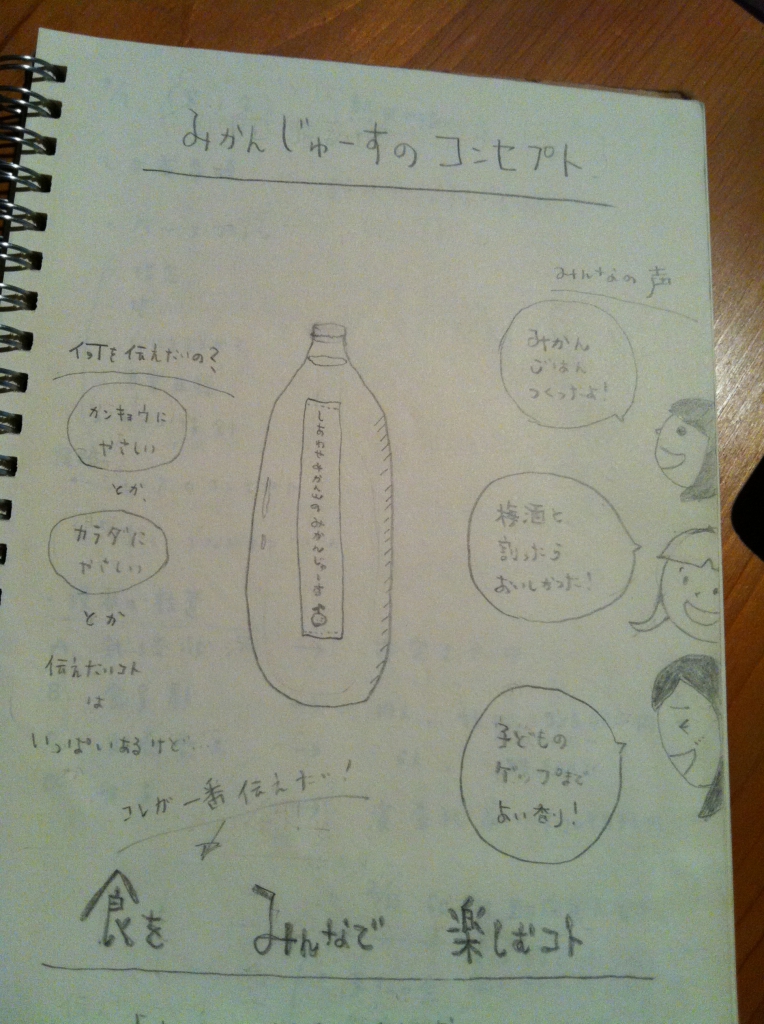 みかんじゅーすのコンセプト
みんなの声
みかん
ごはん
つくったよ!
何を伝えたいの?
カンキョウに
やさしい
とか、
カラダに
やさしい
とか
伝えたいコト
は
いっぱいあるけど…
しあわせみかん山のみかんじゅーす
梅酒と
割ったら
おいしかった!
子どもの
ゲップまで
よい香り!
コレが一番伝えたい!
食を みんなで 楽しむコト